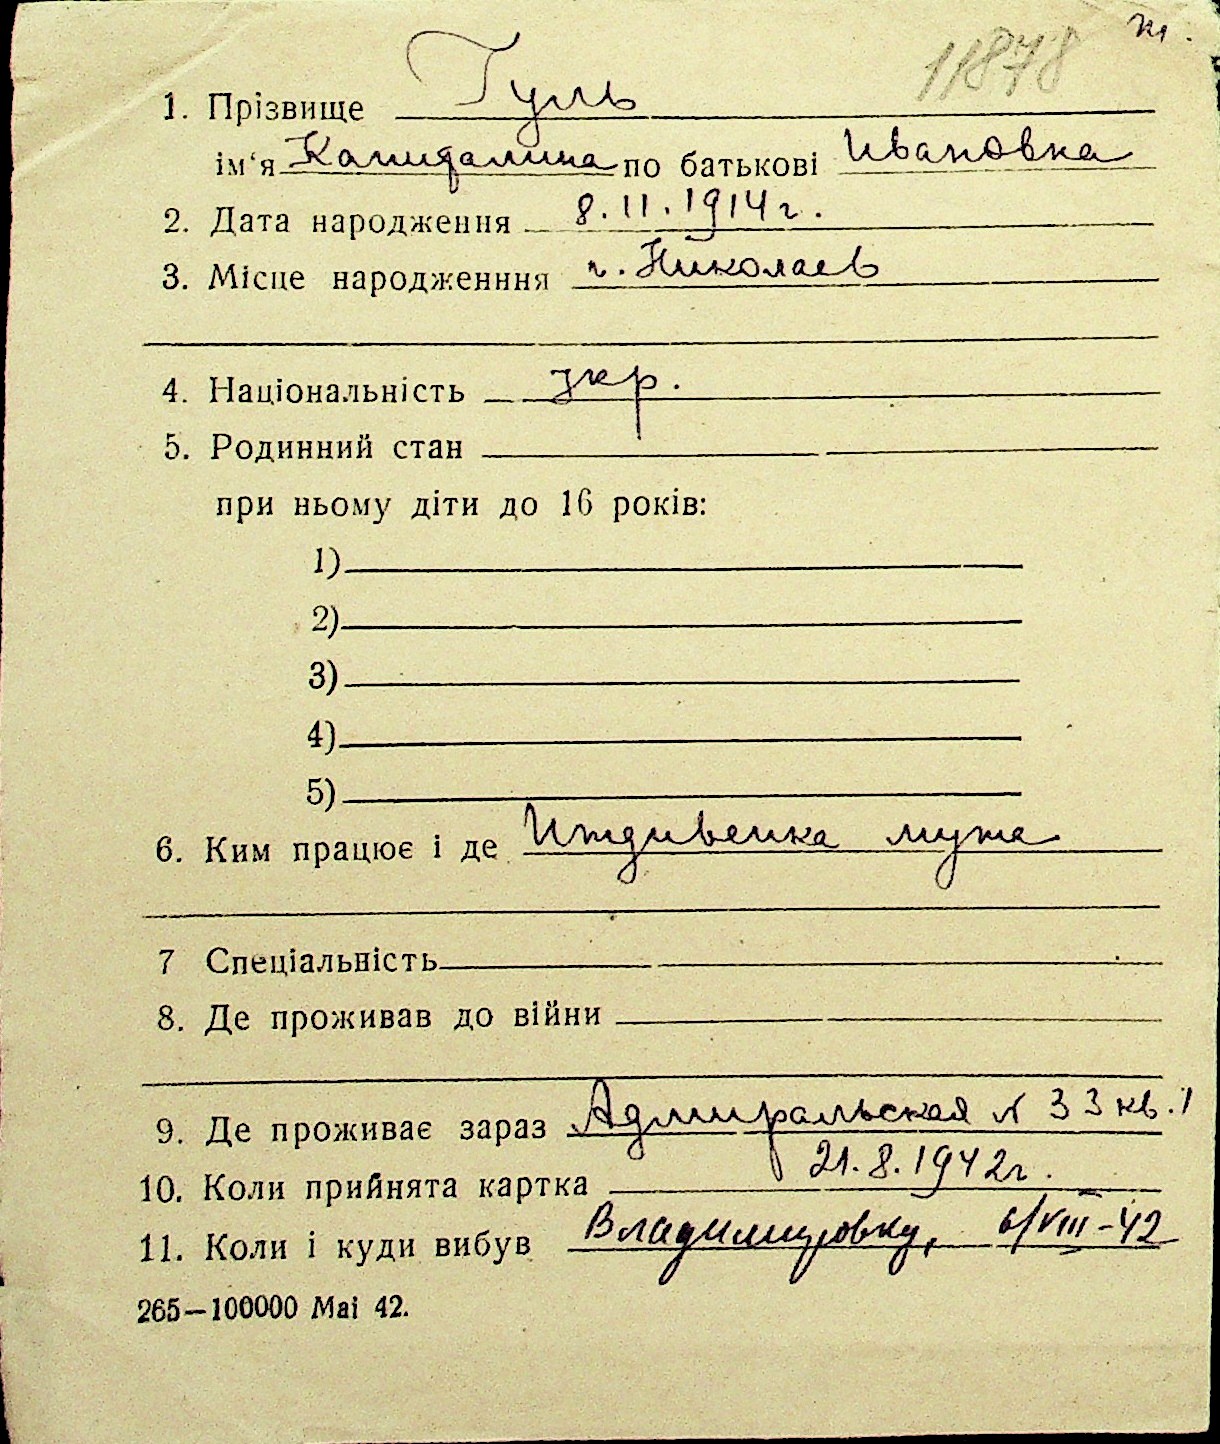 ж.
11878
1. Прізвище Гуль
ім‘я Капиталина по батькові Ивановна
2. Дата народження 8.11.1914г.
3. Місце народженння г. Николаев
4. Національність укр.
5. Родинний стан
при ньому діти до 16 років:
1)
2)
3)
4)
5)
6. Ким працює і де Иждивенка мужа
7 Спеціальність
8. Де проживав до війни
9. Де проживає зараз Адмиральская № 33 кв. 1
10. Коли прийнята картка 21.8.1942г.
11. Коли і куди вибув Владимировку, 6/VIII-42
265—100000 Mai 42.